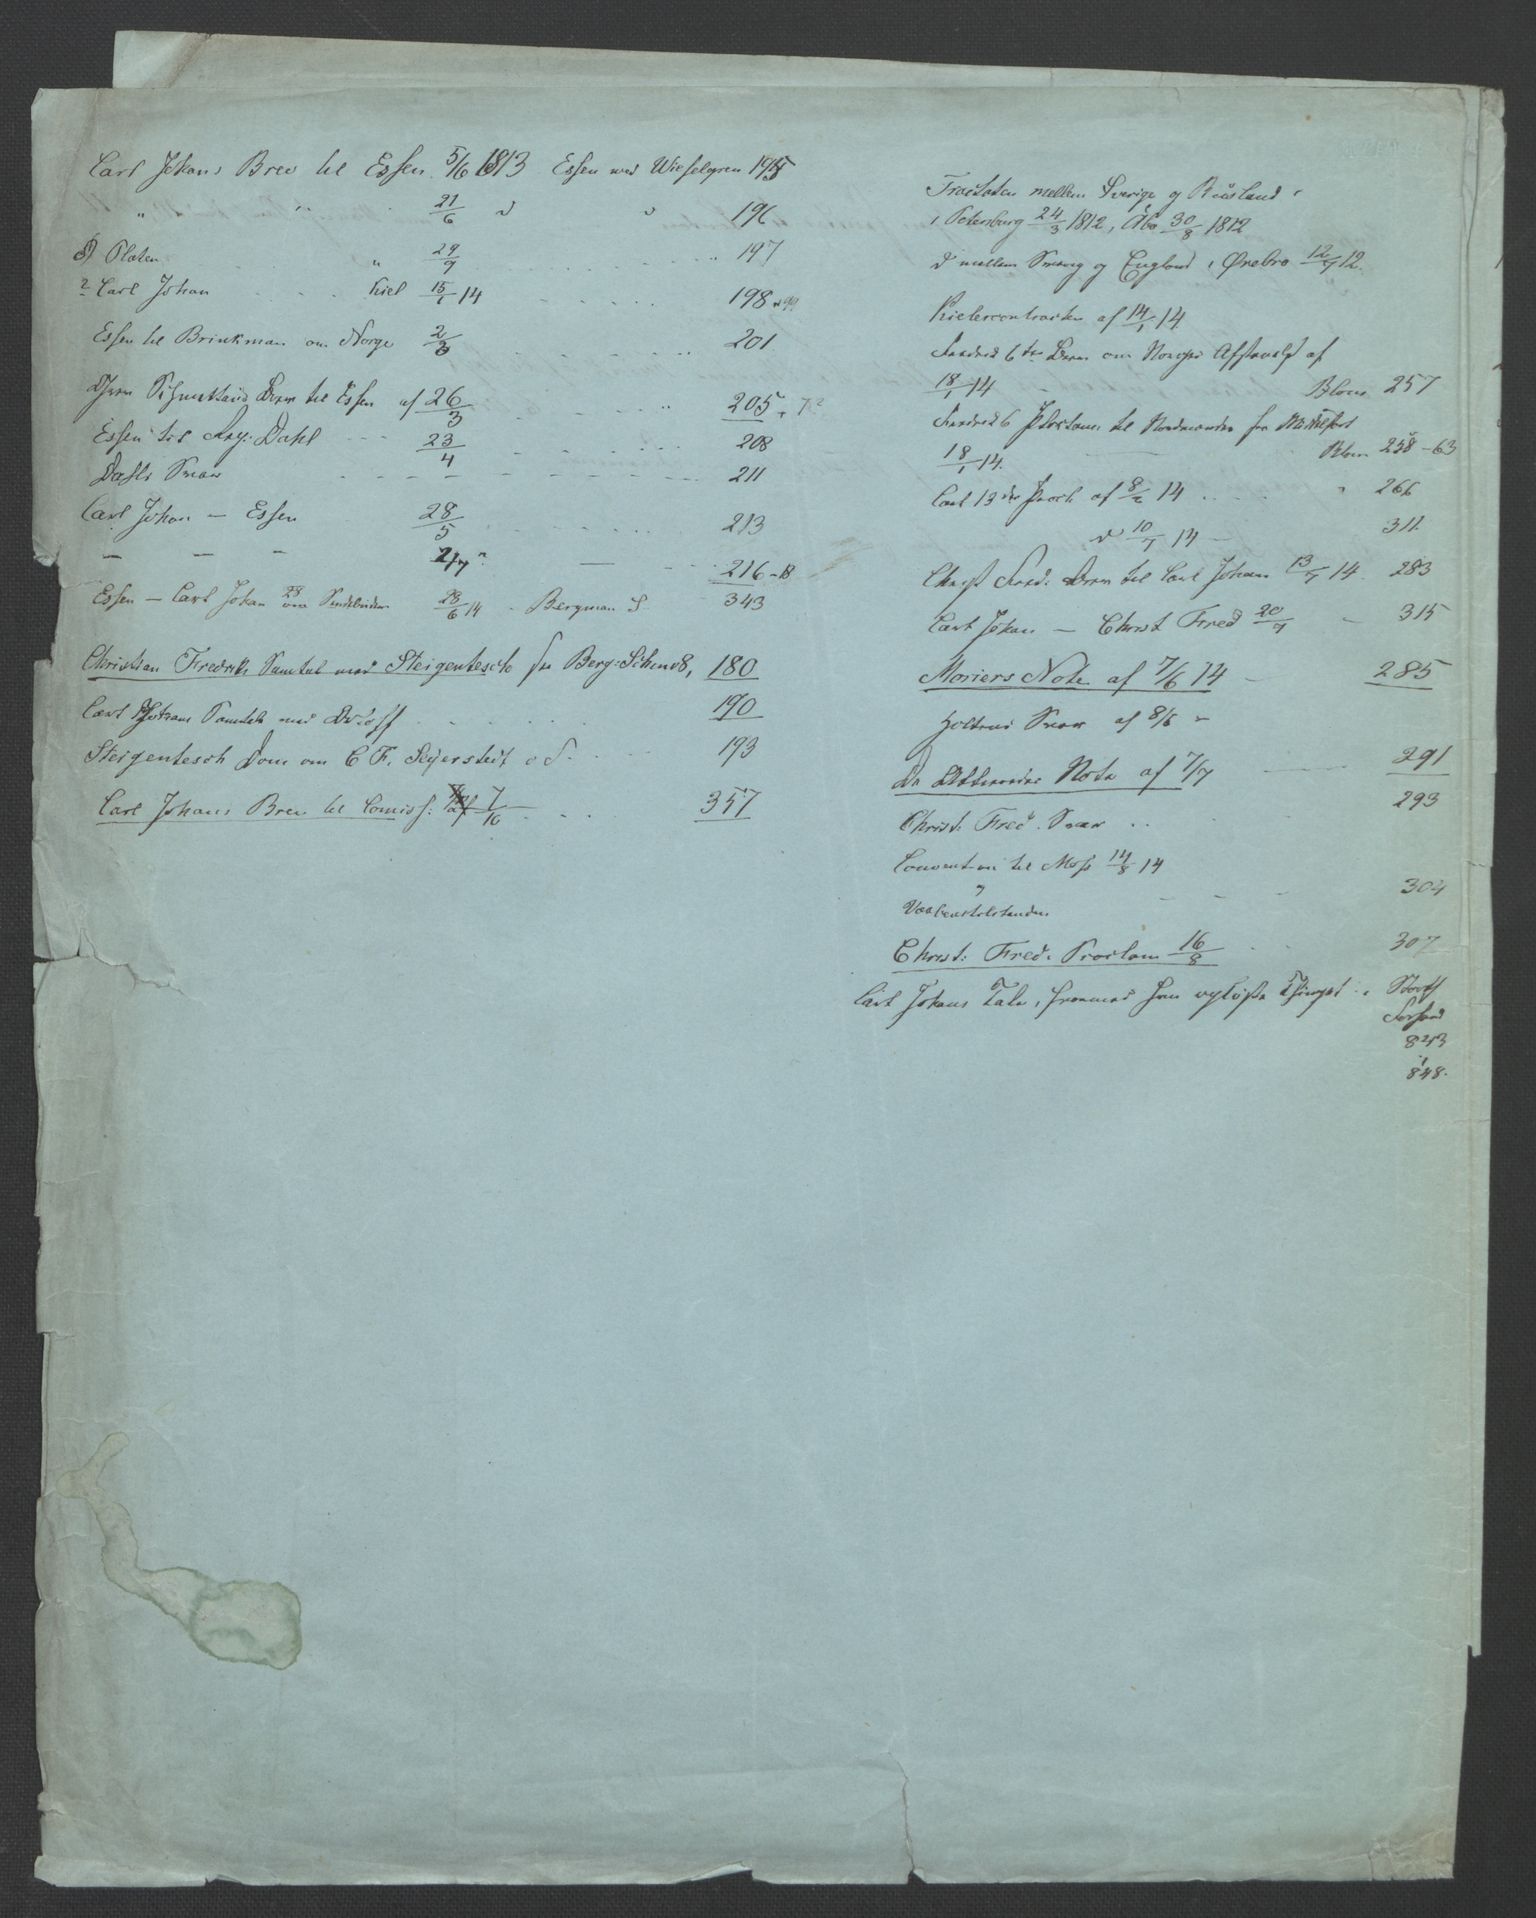 Carl Johans Brev til Essen 5/6 1813 Essen ved Wieselgren 195
" " 21/6 d d 196
Platen " 29/9 197
? Carl Johan Kiel 15/1 14 198 99
Essen til Brinkman om Norge 2/3 201
Brev til Essen af 26/3 205
Essen til Dahl 23/4 208
Dahls Svar 211
Carl Johan – Essen 28/5 213
— — — 2/7 — 216–18
Essen – Carl Johan om 28/6 14 Bergman S. 343
Christian Fredriks Samtale med Steigentesch Berg: 180
Carl Johans Samtale med 190
Steigentesch Dom om C F, Sejersted o S. 193
Carl Johans Brev til Comiss: af 7/10 357
Tractaten mellem Sverige og Rusland i
i Petersburg 24/3 1812, Åbo 30/8 1812
d mellem Sverig og England i Ørebro 12/7 12.
Kielercontracten af 14/1 14
Fredrik 6 tes Brev om Norges Afstaaelse af
18/1 14 Blom 257
Fredrik 6 til Nordmænden fra Middelfart
18/1 14. Blom 258–63
Carl 13 des Procl af 8/2 14 " 266
d 10/7 14 — 311
Christ Fred. Brev til Carl Johan 13/7 14 283
Carl Johan — Christ Fred 20/7 – 315
Moriers Note af 7/6 14 – 285
Holtens Svar af 8/6
De Note af 7/7 — 291
Christ. Fred. Svar .. 293
Convention til Moss 14/8 14
"
Vaabenstilstanden 304
Christ: Fred. Proclam 16/8 307
Carl Johans Tale, hvormed han opløste Thinget i Storth
Forhand
843
848.